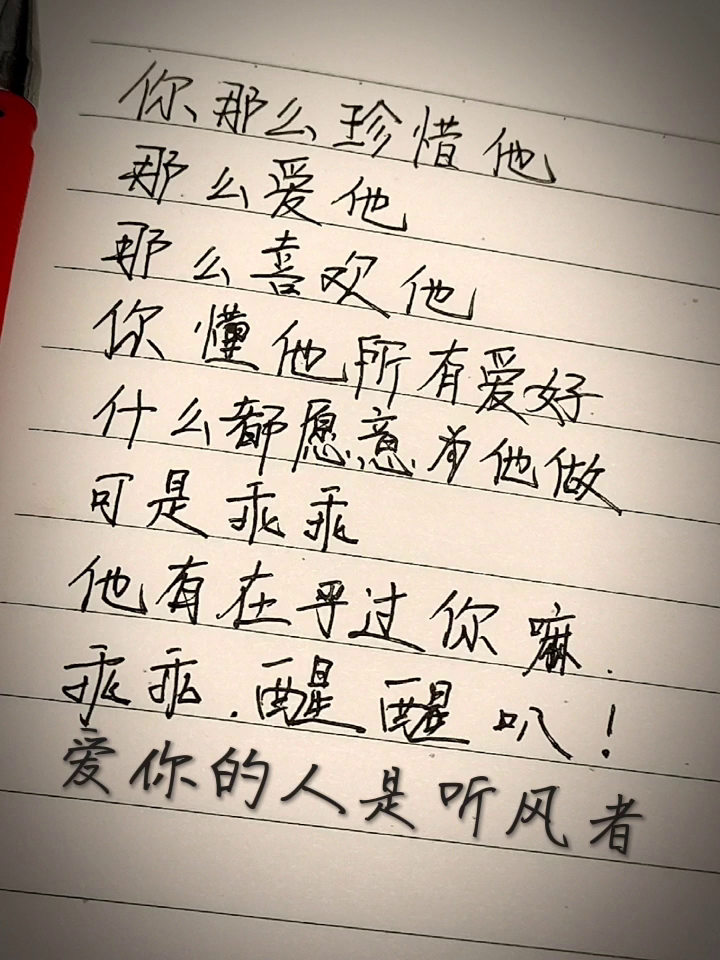 你那么珍惜他
那么爱他
那么喜欢他
你懂他所有爱好
什么都愿意为他做
可是乖乖
他有在乎过你嘛.
乖乖.醒醒叭!
爱你的人是听风者